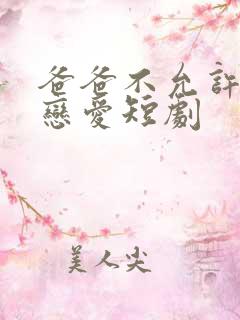 爸爸不允許
戀愛短劇
美人尖